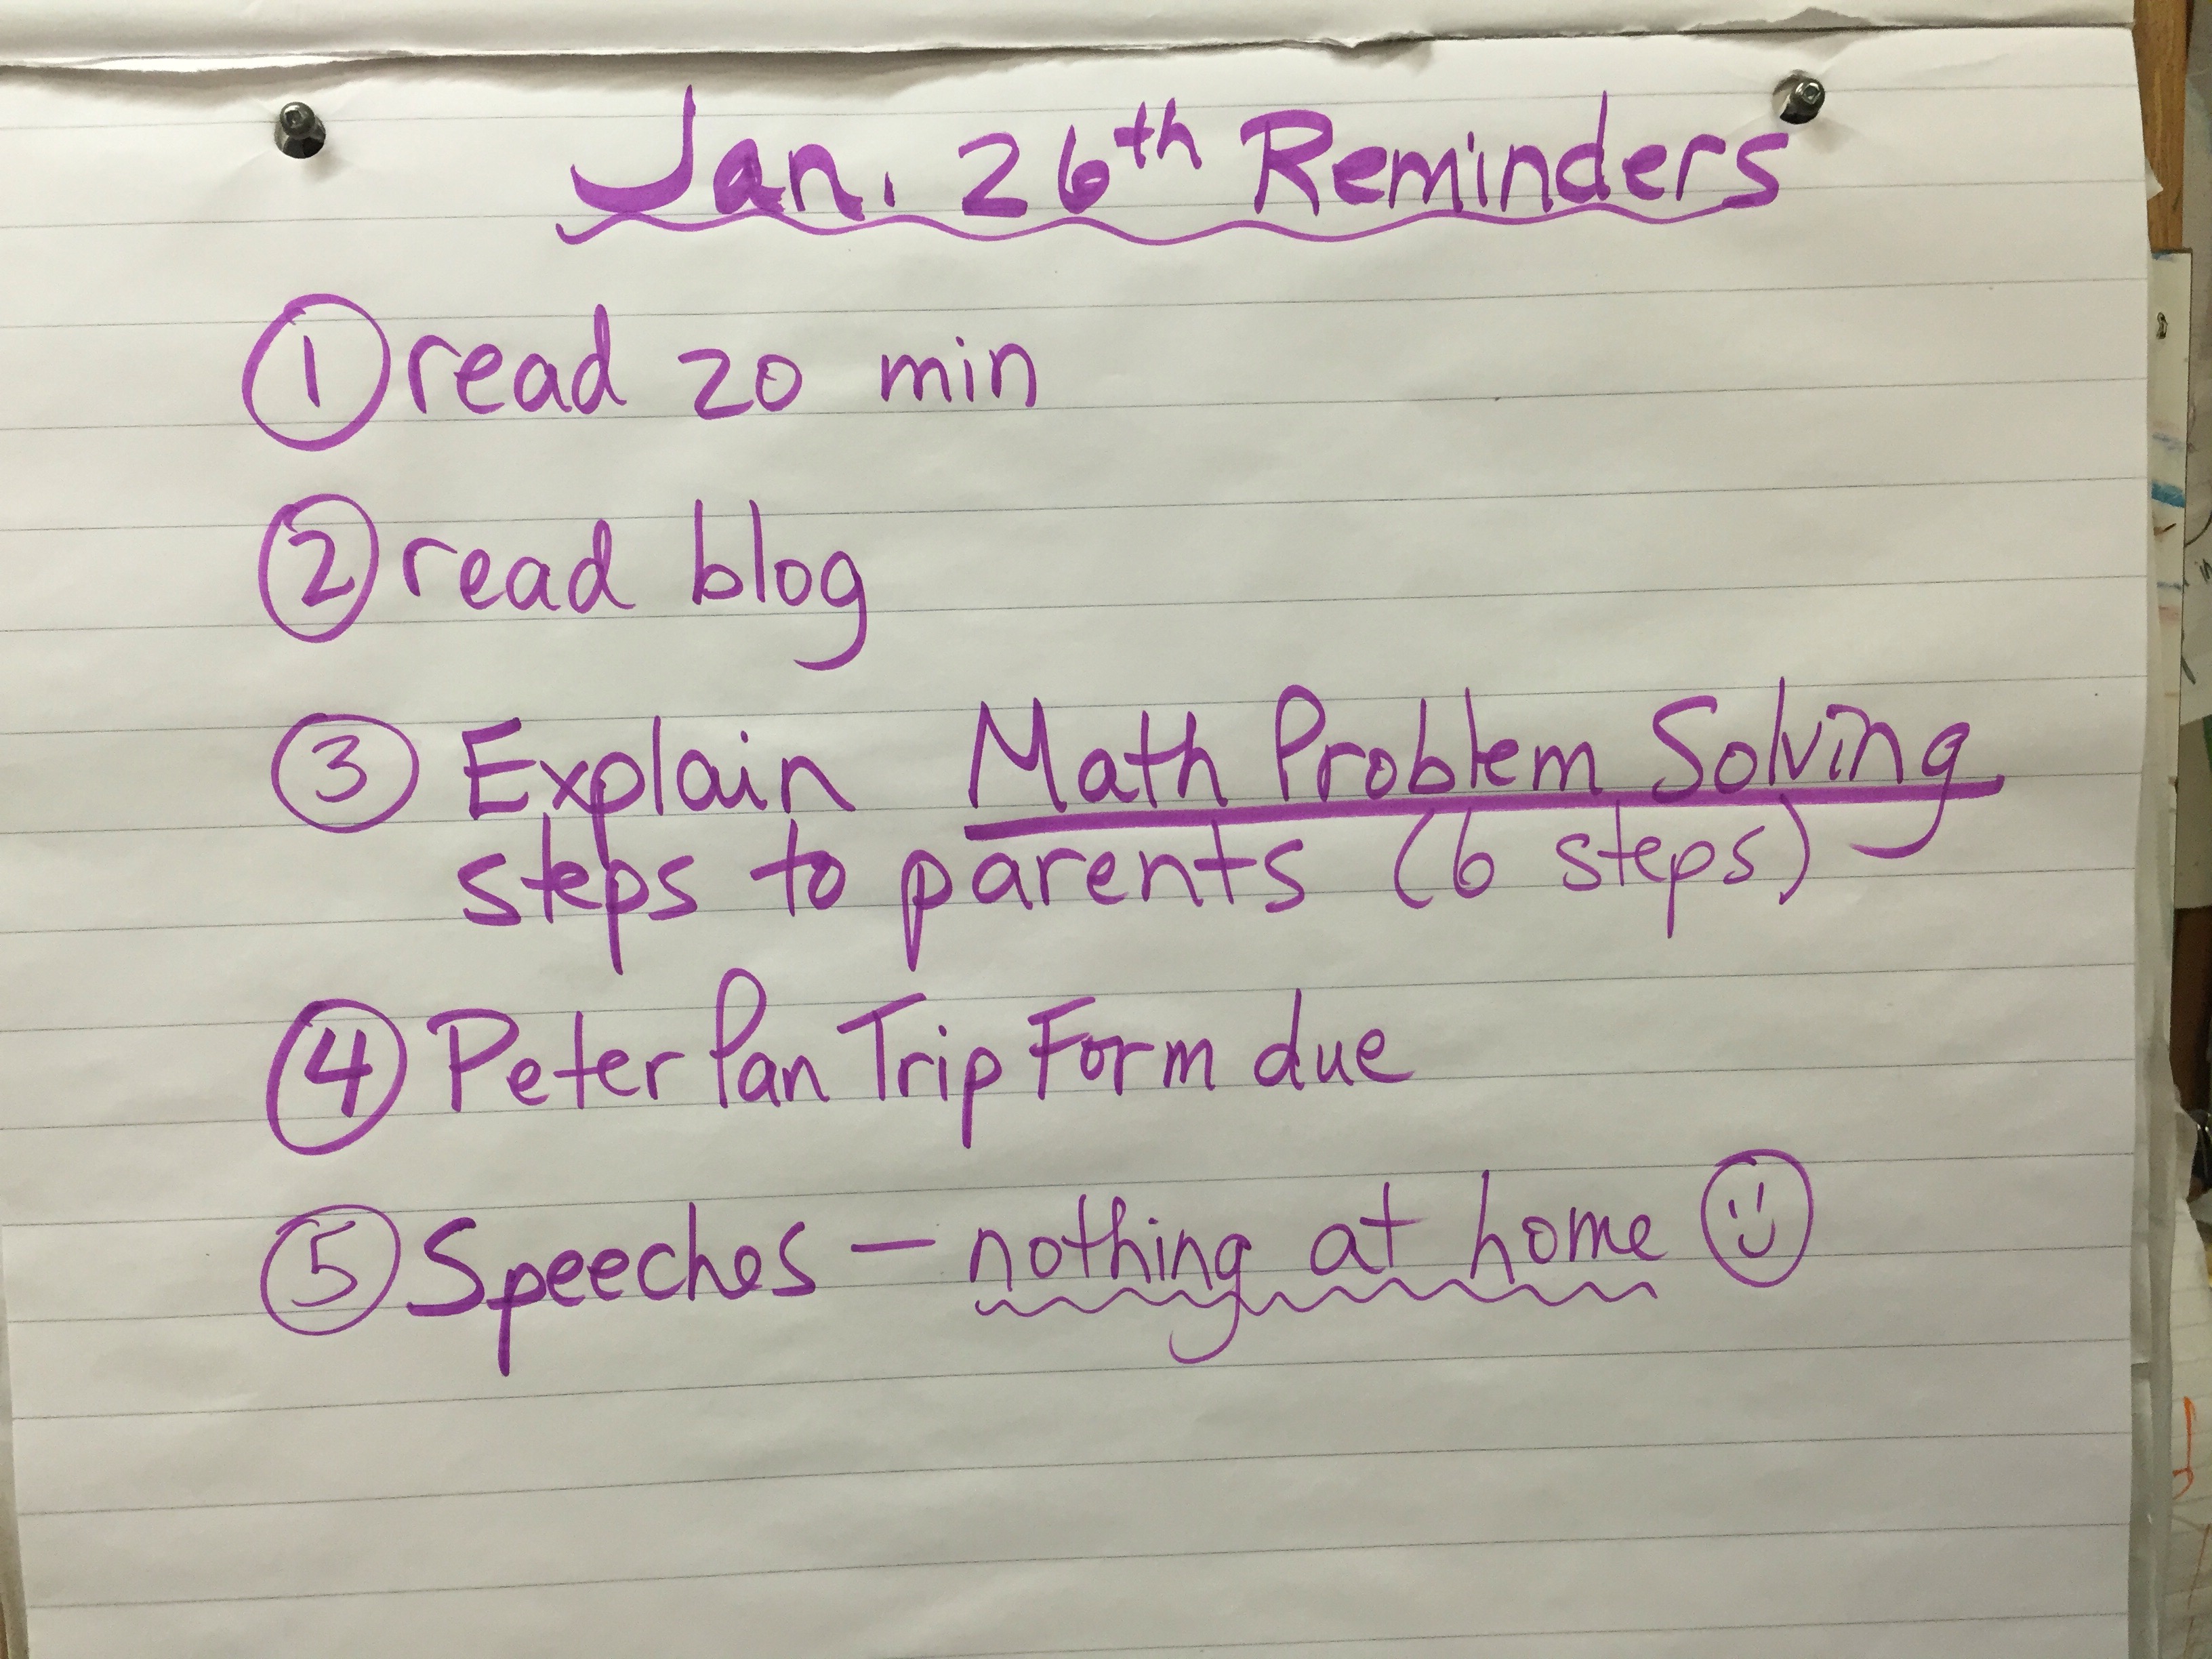 Jan. 26th Reminders
① read 20 min
② read blog
③ Explain Math Problem Solving
steps to parents (6 steps)
④ Peter Pan Trip Form due
⑤ Speeches — nothing at home